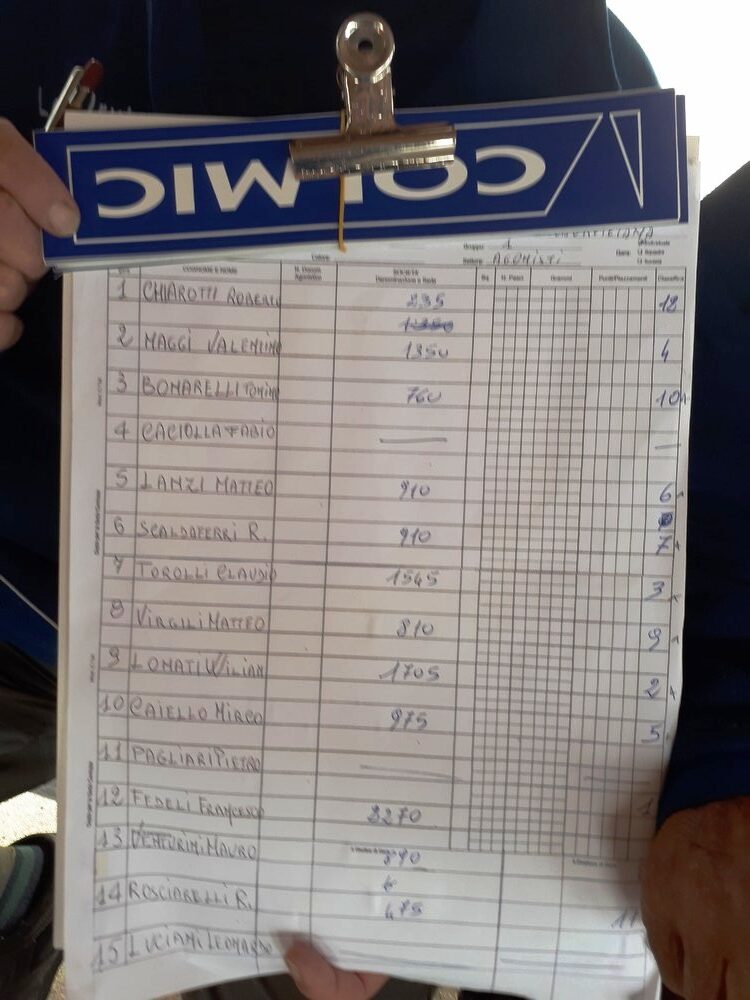 COLMIC
Gruppo 1
Settore AGONISTI
COGNOME E NOME
SOCIETÀ
Denominazione e Sede
N. Pesci
Grammi
Classifica
1 CHIAROTTI ROBERTO 235 12
1350
2 MAGGI VALENTINO 1350 4
3 BOMARELLI TONINO 760 10
4 CACIOLLA FABIO — —
5 LANZI MATTEO 910 6
6 SCALDAFERRI R. 910 7
7 TOROLLI CLAUDIO 1545 3
8 VIRGILI MATTEO 810 9
9 LOMATI WILIAM 1705 2
10 CAIELLO MIRCO 975 5
11 PAGLIARI PIETRO —
12 FEDELI FRANCESCO 2270 1
13 VENTURINI MAURO
14 ROSCIARELLI R. 475 11
15 LUCIANI LEONARDO